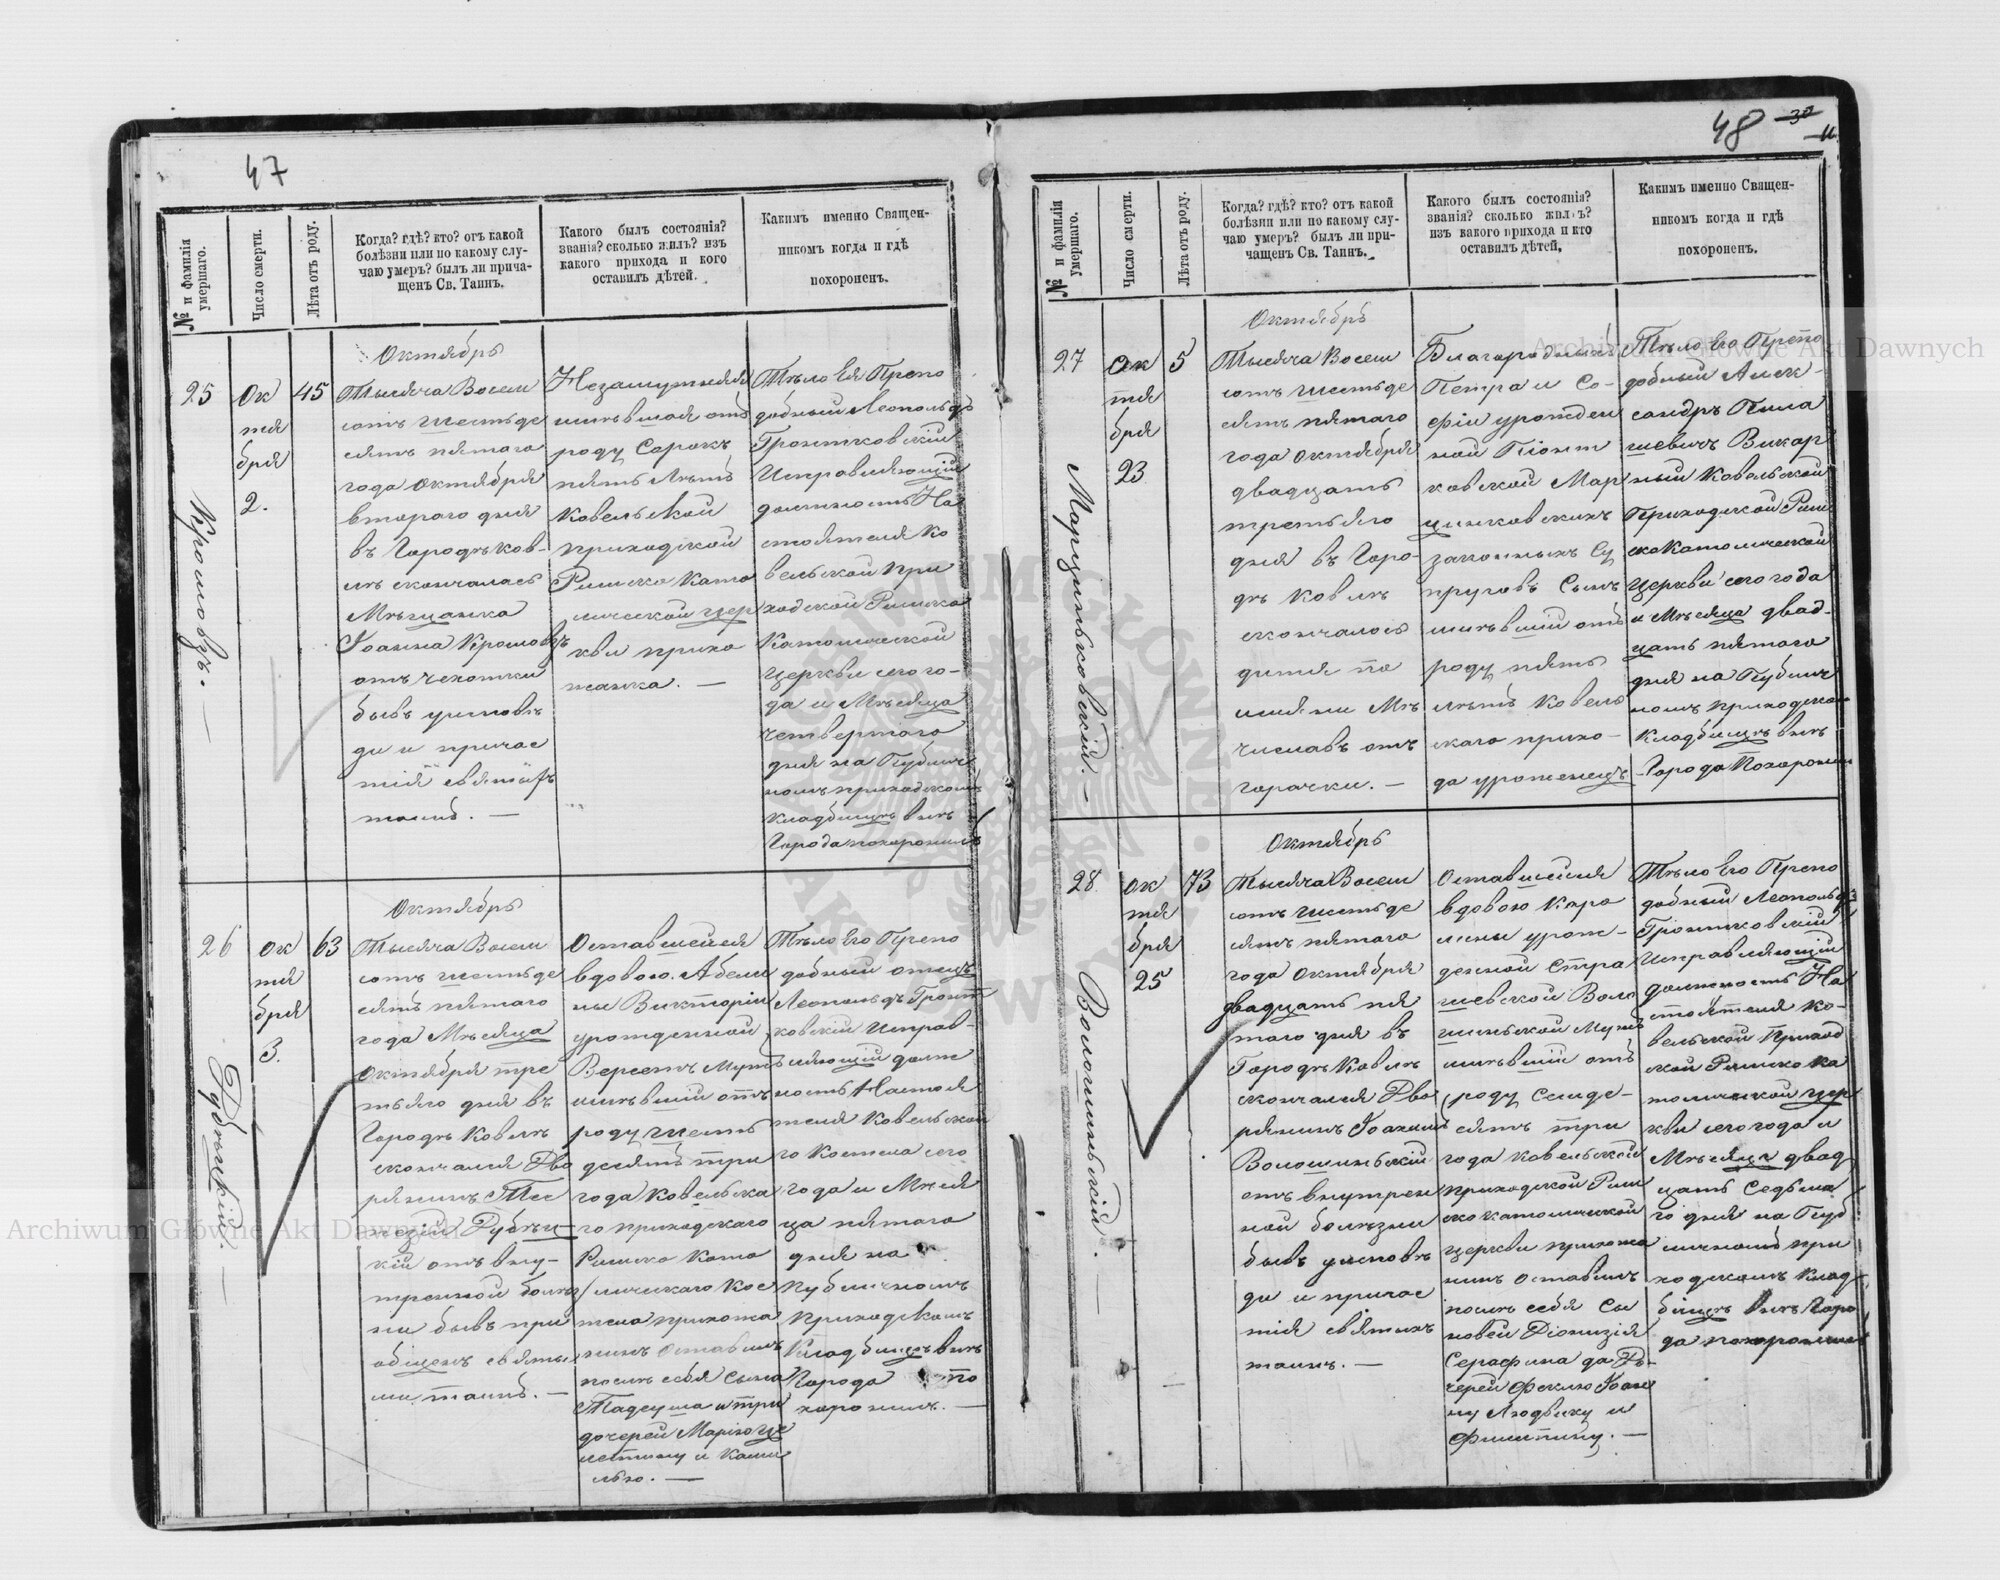 47
№ и фамилія умершаго.
Число смерти.
Лѣта отъ роду.
Когда? гдѣ? кто? отъ какой
болѣзни или по какому слу-
чаю умеръ? былъ ли прича-
щенъ Св. Таинъ.
Какого былъ состоянія?
званія? сколько жилъ? изъ
какого прихода и кого
оставилъ дѣтей.
Какимъ именно Священ-
никомъ когда и гдѣ
похороненъ.
25
Кромовъ. —
Ок
тя
бря
2.
45
Октябрь
Тысяча Восем
сотъ шестьде
сятъ пятаго
года Октября
втораго дня
въ Городѣ Ков-
лѣ скончалась
Мѣщанка
Іоанна
отъ чахотки
бывъ исповѣ
ди и причас
тія святыхъ
таинъ. —
Незамужняя
жившая отъ
роду Сорокъ
пять лѣтъ
Ковельской
приходской
Римско Като
лической цер
кви прихо
жанка. —
Тѣло Ея Препо
добный Леопольдъ
Гронтковскій
Исправляющій
должность На
стоятеля Ко
вельской При
ходской Римско
Католической
церкви сего го-
да и Мѣсяца
четвертаго
дня на Публич
номъ приходскомъ
кладбищѣ внѣ
Города похоронилъ
26
Рубецкій. —
Ок
тя
бря
3.
63
Октябрь
Тысяча Восем
сотъ шестьде
сятъ пятаго
года Мѣсяца
Октября тре
тьяго дня въ
Городѣ Ковлѣ
скончался Дво
рянинъ
кій отъ вну-
тренной болѣз
ни бывъ при
общенъ святы
ми таинъ. —
Оставшейся
вдовою
ны Викторіи
урожденной
мужъ
жившій отъ
роду шесть
десятъ три
года Ковельска
го приходскаго
Римско Като
лическаго Кос
тела прихожа
нинъ оставилъ
послѣ себя Сына
Тадеуша и три
дочерей Марію Це
лестину и Ками
лію. —
Тѣло Его Препо
добный отецъ
Леопольдъ Гронт
ковскій исправ-
ляющій долж
ность Настоя
теля Ковельска
го Костела сего
года и Мѣся
ца пятаго
дня на
публичномъ
приходскомъ
Кладбищѣ внѣ
Города по
хоронилъ. —
48
30
№ и фамилія умершаго.
Число смерти.
Лѣта отъ роду.
Когда? гдѣ? кто? отъ какой
болѣзни или по какому слу-
чаю умеръ? былъ ли при-
чащенъ Св. Таинъ.
Какого былъ состоянія?
званія? сколько жилъ?
изъ какого прихода и кто
оставилъ дѣтей.
Какимъ именно Священ-
никомъ когда и гдѣ
похороненъ.
27
Марциньковскій. —
Ок
тя
бря
23
5
Октябрь
Тысяча Восем
сотъ шестьде
сятъ пятаго
года Октября
двадцать
третьяго
дня въ Горо-
дѣ Ковлѣ
скончалось
дитя по
имени Мѣ
числавъ отъ
горачки. —
Благородныхъ
Петра и Со-
фіи урожден
ной Піонт
ковской Мар
цинковскихъ
законныхъ Су
пруговъ Сынъ
жившій отъ
роду пять
лѣтъ Ковель
скаго прихо-
да уроженецъ
Тѣло Его Препо
добный Алек-
сандръ Пила
шевичъ Викар
ный Ковельской
Приходской Рим
ско Католической
Церкви сего года
и Мѣсяца двад-
цать пятаго
дня на Публич
номъ приходском
кладбищѣ внѣ
Города Похоронилъ
28
Волошинскій. —
Ок
тя
бря
25
73
Октябрь
Тысяча Восем
сотъ шестьде
сятъ пятаго
года Октября
двадцать пя
таго дня въ
Городѣ Ковлѣ
скончался Дво
рянинъ Іоакимъ
Волошинскій
отъ внутрен
ной болѣзни
бывъ исповѣ
ди и причас
тія святыхъ
таинъ. —
Оставшейся
вдовою Каро
лины урож-
денной Стра
шевской Воло
шинской Мужъ
жившій отъ
роду Семде-
сятъ три
года Ковельской
приходской Рим
ско католической
церкви прихожа
нинъ оставилъ
послѣ себя Сы
новей Діонизія
Серафина да До-
черей Феклю Іоан
ну Людвику и
Филипину. —
Тѣло Его Препо
добный Леопольдъ
Гронтковскій
Исправляющій
должность На
стоятеля Ко-
вельской Приход
ской Римско Ка
толической цер
кви сего года и
Мѣсяца двад
цать Седьма
го дня на Пуб
личномъ при
ходскомъ Клад
бищѣ внѣ Горо
да похоронилъ
Archiwum Główne Akt Dawnych
Archiwum Główne Akt Dawnych
ARCHIWUM GŁÓWNE AKT DAWNYCH